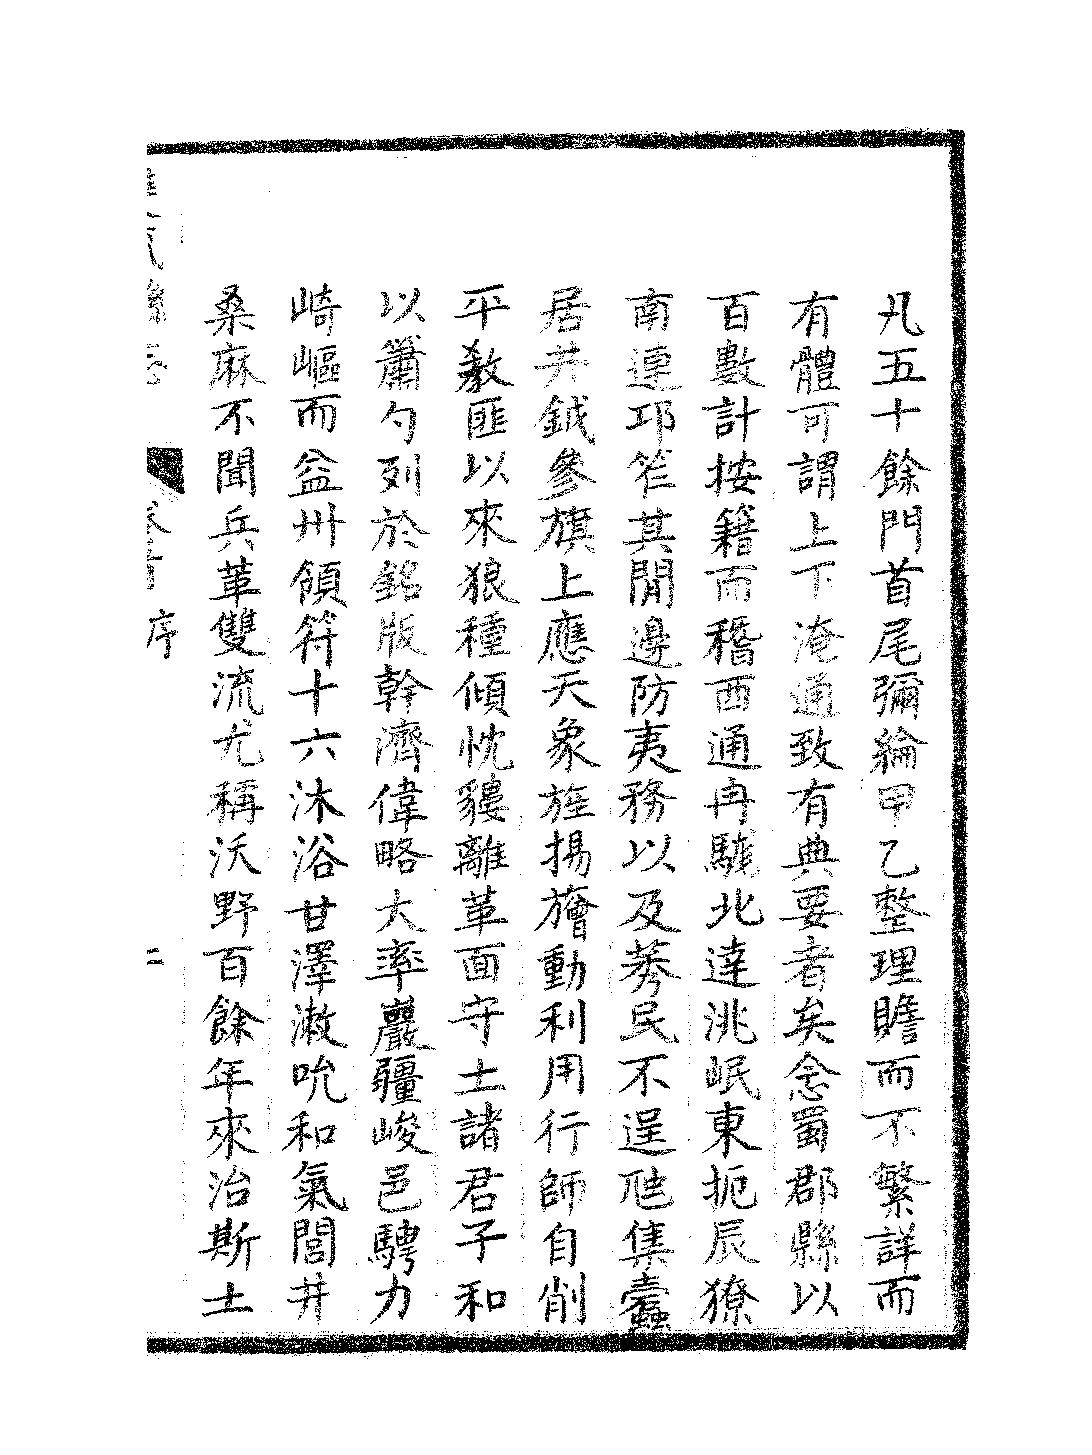 凡五十餘門首尾彌綸甲乙整理贍而不繁詳而
有體可謂上下淹通致有典要者矣念蜀郡縣以
百數計按籍而稽西通冉駹北達洮岷東扼辰獠
南連邛笮其閒邊防夷務以及莠民不逞虺集蠧
居井鉞參旗上應天象旌揚旝動利用行師自削
平敉匪以來狼種傾忱貗離革面守土諸君子和
以簫勺列於銘版幹濟偉略大率巖疆峻邑騁力
崎嶇而益州領符十六沐浴甘澤漱吮和氣閭井
桑麻不聞兵革雙流尤稱沃野百餘年來治斯土
卷首 序
二